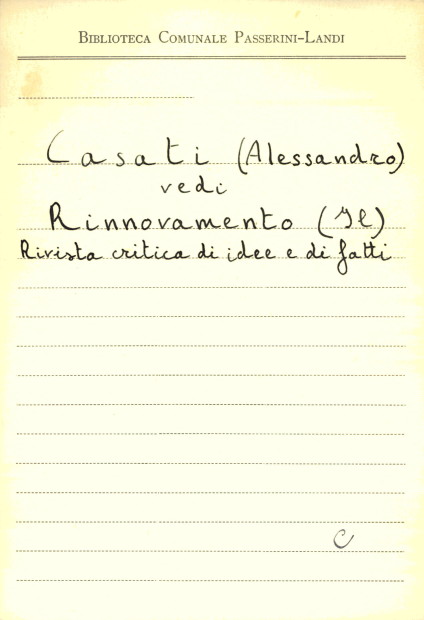 Biblioteca Comunale Passerini-Landi
Casati (Alessandro)
vedi
Rinnovamento (Il)
Rivista critica di idee e di fatti
C